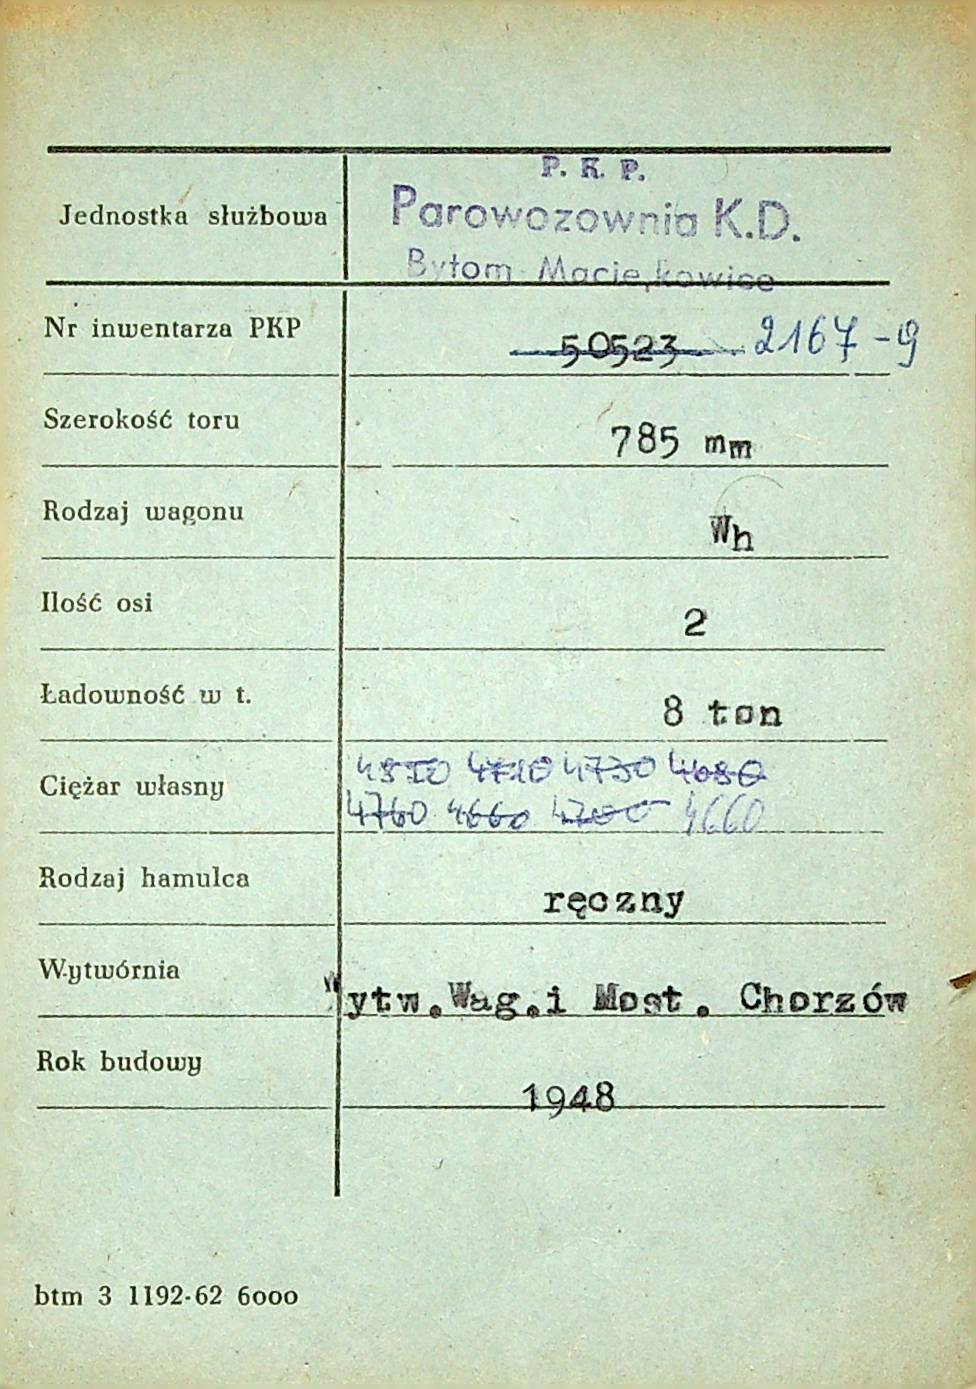 P. K. P.
Jednostka służbowa Parowozownia K.D.
Bytom Maciejkowice
Nr inwentarza PKP 50523 2167-9
Szerokość toru 785 mm
Rodzaj wagonu Wh
Ilość osi 2
Ładowność w t. 8 ton
4710 4730 4680
Ciężar własny
4760 4660 4700 4660
Rodzaj hamulca ręczny
Wytwórnia Wytw.Wag.i Most. Chorzów
Rok budowy 1948
btm 3 1192-62 6000